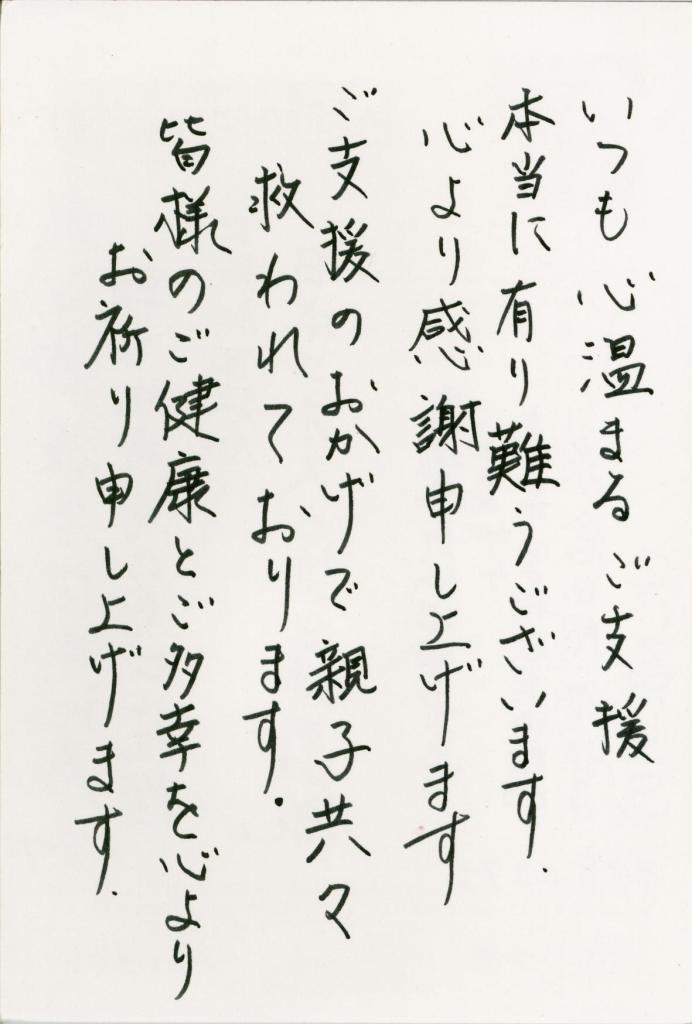 いつも心温まるご支援
本当に有り難うございます.
心より感謝申し上げます
ご支援のおかげで親子共々
救われております.
皆様のご健康とご多幸を心より
お祈り申し上げます.